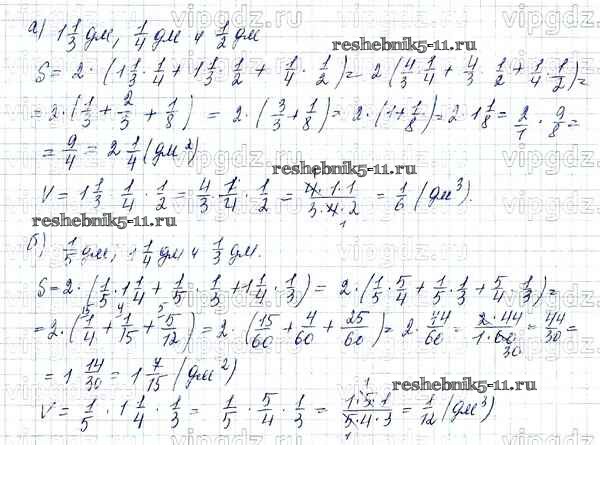 а) 1 1/3 дм, 1/4 дм и 1/2 дм
reshebnik5-11.ru
S = 2 · (1 1/3 · 1/4 + 1 1/3 · 1/2 + 1/4 · 1/2) = 2 (4/3 · 1/4 + 4/3 · 1/2 + 1/4 · 1/2) =
= 2 · (1/3 + 2/3 + 1/8) = 2 · (3/3 + 1/8) = 2 · (1 + 1/8) = 2 · 1 1/8 = 2/1 · 9/8 =
= 9/4 = 2 1/4 (дм²)
reshebnik5-11.ru
V = 1 1/3 · 1/4 · 1/2 = 4/3 · 1/4 · 1/2 = 4·1·1/3·4·2 = 1/6 (дм³).
reshebnik5-11.ru
б) 1/5 дм, 1 1/4 дм и 1/3 дм.
S = 2 · (1/5 · 1 1/4 + 1/5 · 1/3 + 1 1/4 · 1/3) = 2 · (1/5 · 5/4 + 1/5 · 1/3 + 5/4 · 1/3) =
= 2 · (1/4 + 1/15 + 5/12) = 2 · (15/60 + 4/60 + 25/60) = 2 · 44/60 = 2·44/1·60 = 44/30 =
= 1 14/30 = 1 7/15 (дм²)
reshebnik5-11.ru
V = 1/5 · 1 1/4 · 1/3 = 1/5 · 5/4 · 1/3 = 1·5·1/5·4·3 = 1/12 (дм³)
vipgdz.ru